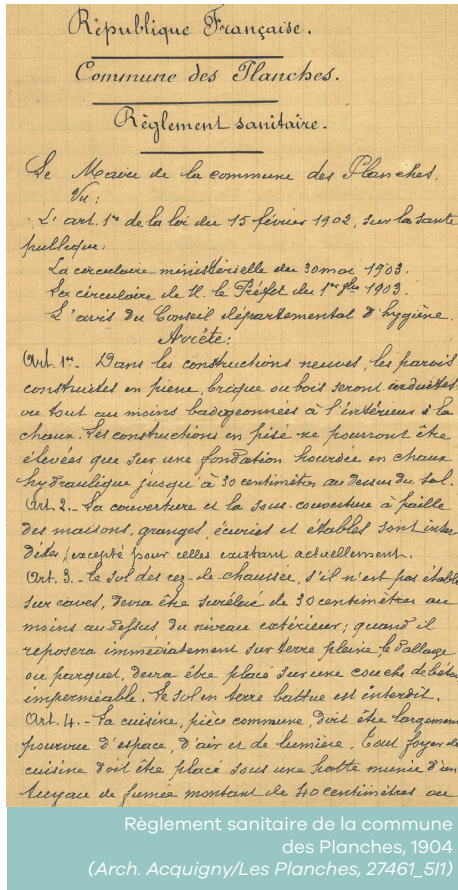 République Française.
Commune des Planches.
Règlement sanitaire.
Le Maire de la commune des Planches.
Vu:
L'art. 1er de la loi du 15 février 1902, sur la santé
publique:
La circulaire ministérielle du 30 mai 1903.
La circulaire de M. le Préfet du 1er 9bre 1903.
L'avis du Conseil départemental d'hygiène.
Arrête:
Art. 1er - Dans les constructions neuves, les parois
construites en pierre, brique ou bois seront enduites
ou tout au moins badigeonnées à l'intérieur à la
chaux. Les constructions en pisé ne pourront être
élevées que sur une fondation hourdée en chaux
hydraulique jusqu'à 30 centimètres au dessus du sol.
Art. 2. - La couverture et la sous-couverture à paille
des maisons, granges, écuries et étables sont inter
dites, excepté pour celles existant actuellement.
Art. 3. - Le sol des rez-de-chaussée, s'il n'est pas établi
sur caves, devra être surélevé de 30 centimètres au
moins au dessus du niveau extérieur; quand il
reposera immédiatement sur terre pleine le dallage
ou parquet, devra être placé sur une couche de béton
imperméable. Le sol en terre battue est interdit.
Art. 4. - La cuisine, pièce commune, doit être largement
pourvue d'espace, d'air et de lumière. Tout foyer de
cuisine doit être placé sous une hotte munie d'un
tuyau de fumée montant de 40 centimètres au
Règlement sanitaire de la commune
des Planches, 1904
(Arch. Acquigny/Les Planches, 27461_5I1)